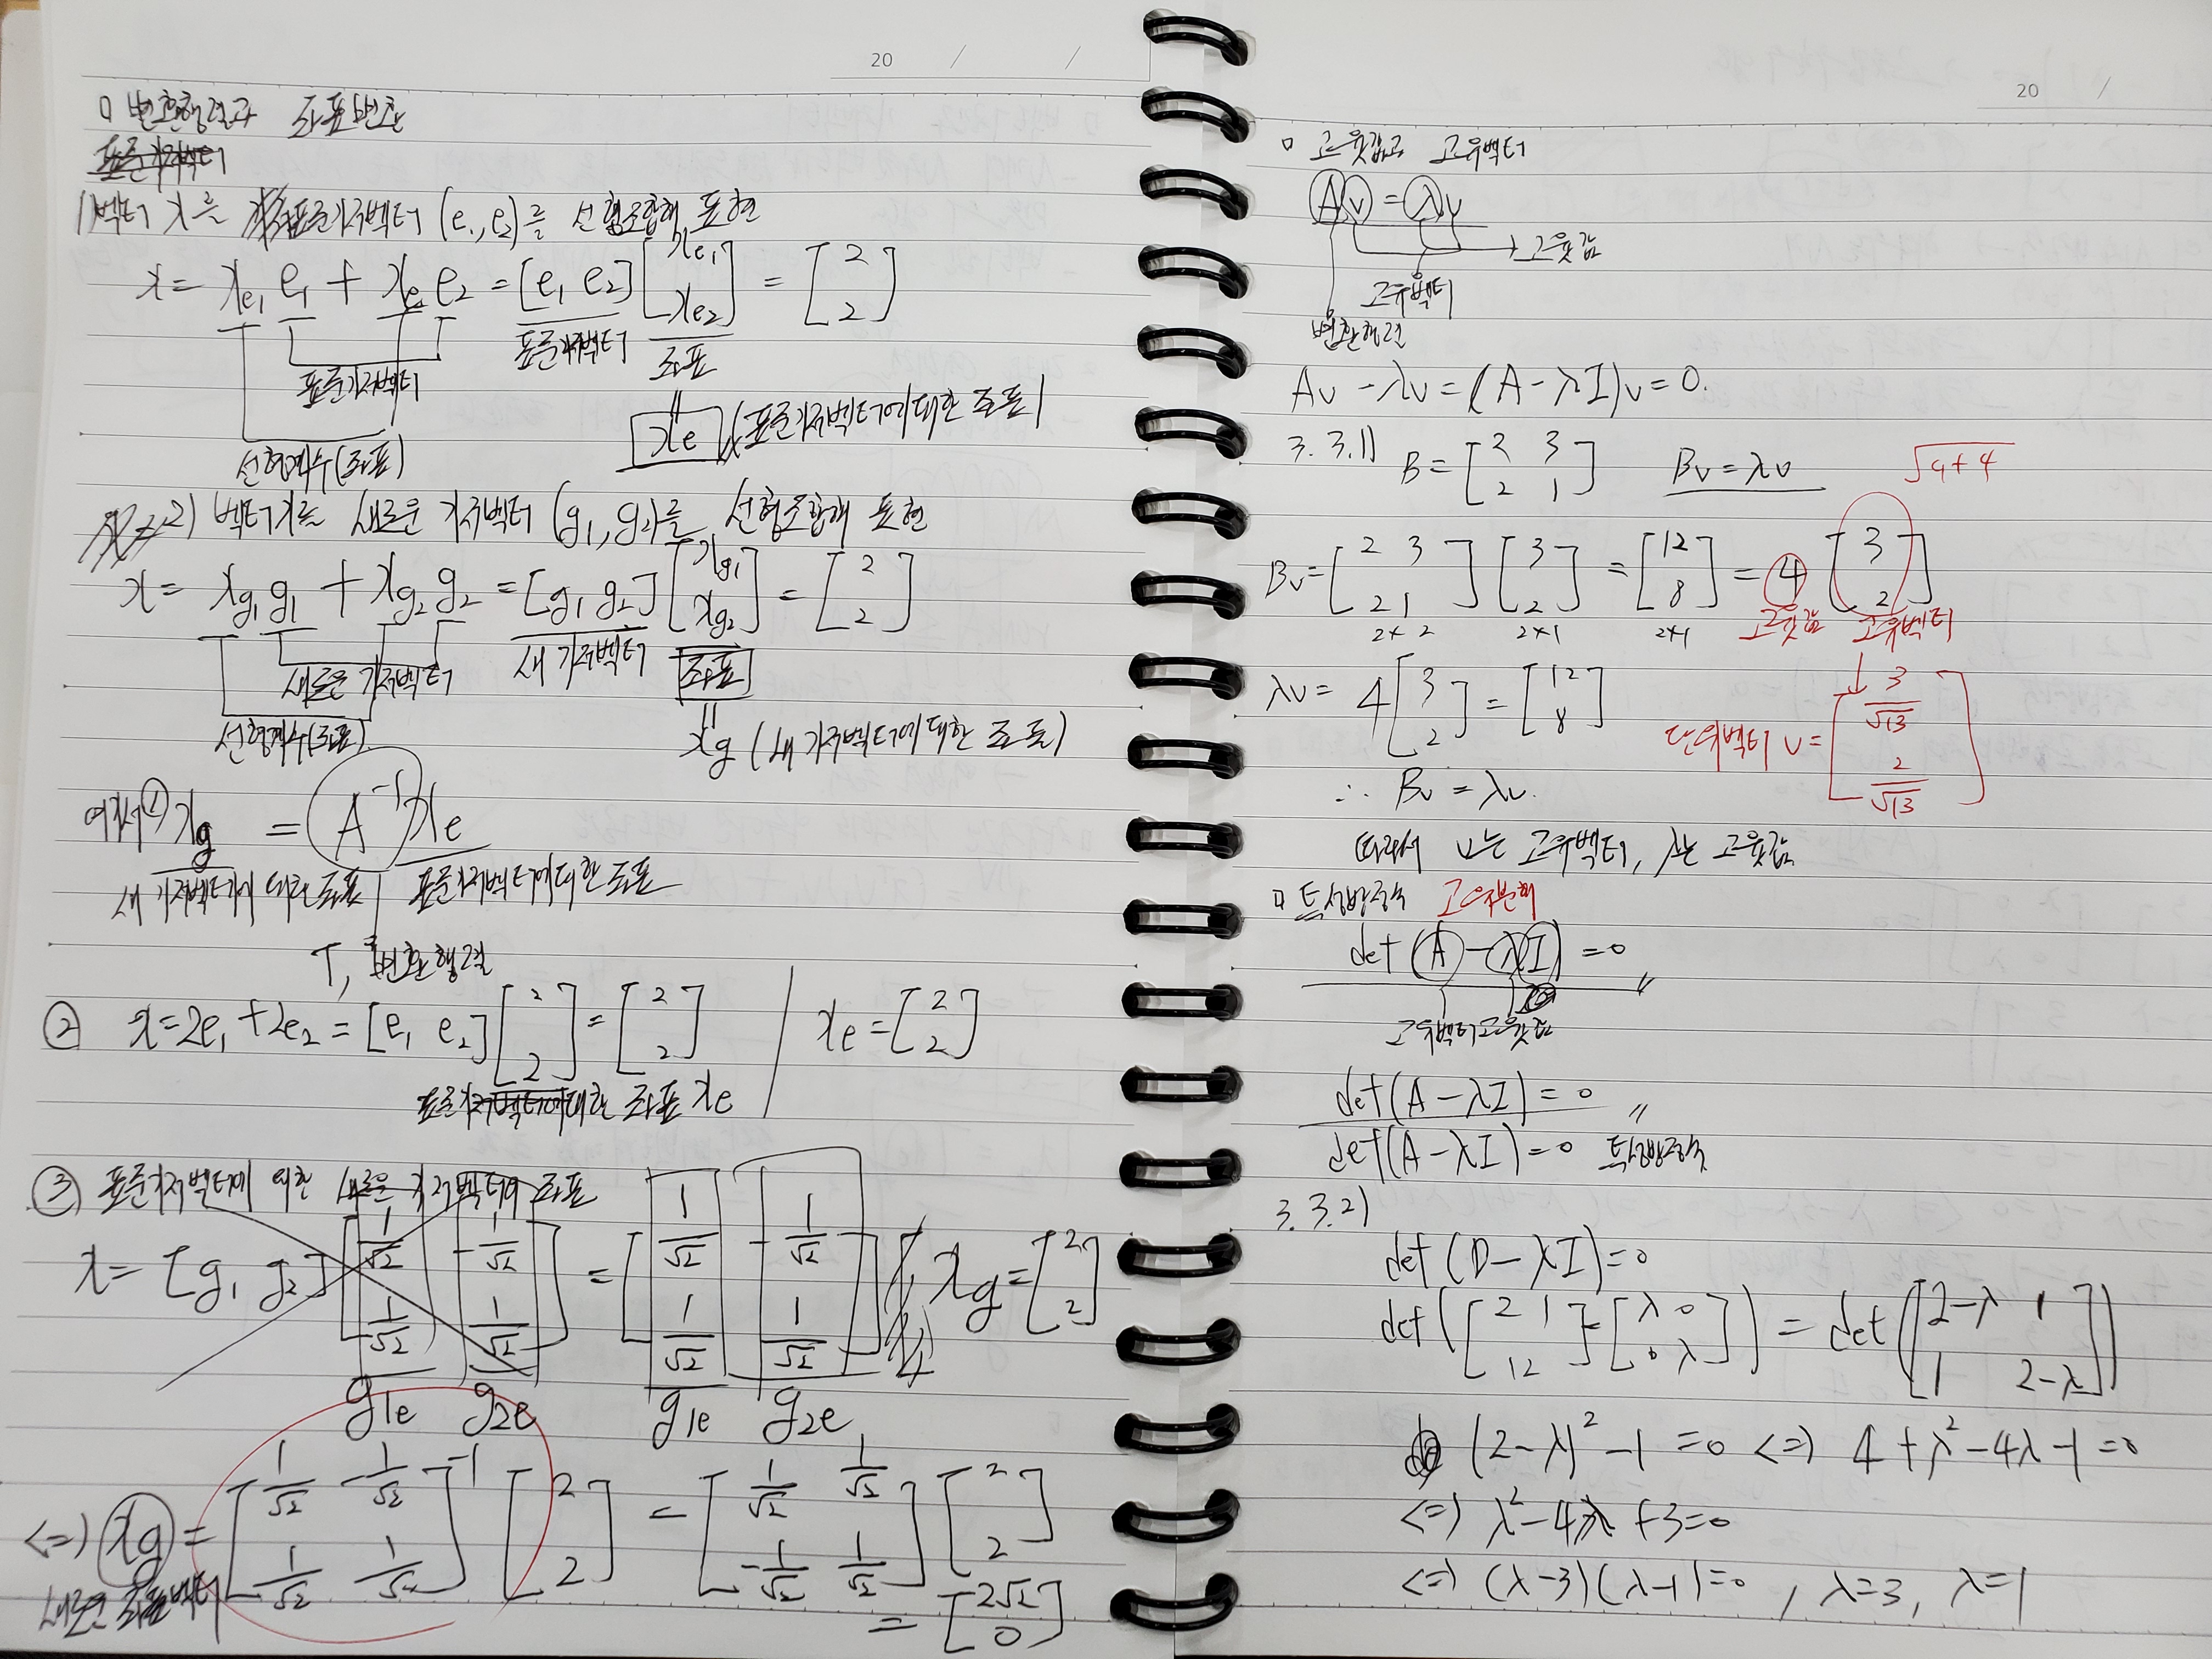 20 / /
□ 변환행렬과 좌표변환
표준기저벡터
벡터 x를 표준기저벡터 (e₁, e₂)를 선형종합해 표현
x = xe₁ e₁ + xe₂ e₂ = [e₁ e₂] [xe₁ xe₂] = [2 2]
표준기저벡터
표준벡터 좌표
xe (표준기저벡터에 대한 좌표)
벡터 x는 새로운 기저벡터 (g₁, g₂)를 선형종합해 표현
x = xg₁ g₁ + xg₂ g₂ = [g₁ g₂] [xg₁ xg₂] = [2 2]
새로운 기저벡터
새 기저벡터 좌표
xg (새 기저벡터에 대한 좌표)
① xg = A⁻¹ xe
새 기저벡터에 대한 좌표 표준기저벡터에 대한 좌표
T, 변환행렬
② x = 2e₁ + 2e₂ = [e₁ e₂] [2 2] = [2 2]
xe = [2 2]
③ 표준기저벡터에 의한 새로운 기저벡터 좌표
x = [g₁ g₂]
g₁e g₂e
g₁e g₂e
xg = [2 2]
<=> xg = [1/√2 -1/√2 1/√2 1/√2]⁻¹ [2 2] = [1/√2 1/√2 -1/√2 1/√2] [2 2]
= [2√2 0]
20 /
□ 고윳값과 고유벡터
Av = λv → 고윳값
고유벡터
변환행렬
Av - λv = (A - λI)v = 0.
3.3.1) B = [2 3 2 1] Bv = λv
√9+4
Bv = [2 3 2 1] [3 2] = [12 8] = 4 [3 2]
2×2 2×1 2×1 고윳값 고유벡터
λv = 4 [3 2] = [12 8]
∴ Bv = λv.
단위벡터 v = [3/√13 2/√13]
따라서 v는 고유벡터, λ는 고윳값
□ 특성방정식 고유분해
det (A - λI) = 0
고유벡터 고윳값
det (A - λI) = 0 "
det (A - λI) = 0 특성방정식
3.3.2)
det (D - λI) = 0
det ([2 1 1 2] - [λ 0 0 λ]) = det ([2-λ 1 1 2-λ])
(2-λ)² - 1 = 0 <=> 4 + λ² - 4λ - 1 = 0
<=> λ² - 4λ + 3 = 0
<=> (λ-3)(λ-1) = 0 / λ=3, λ=1